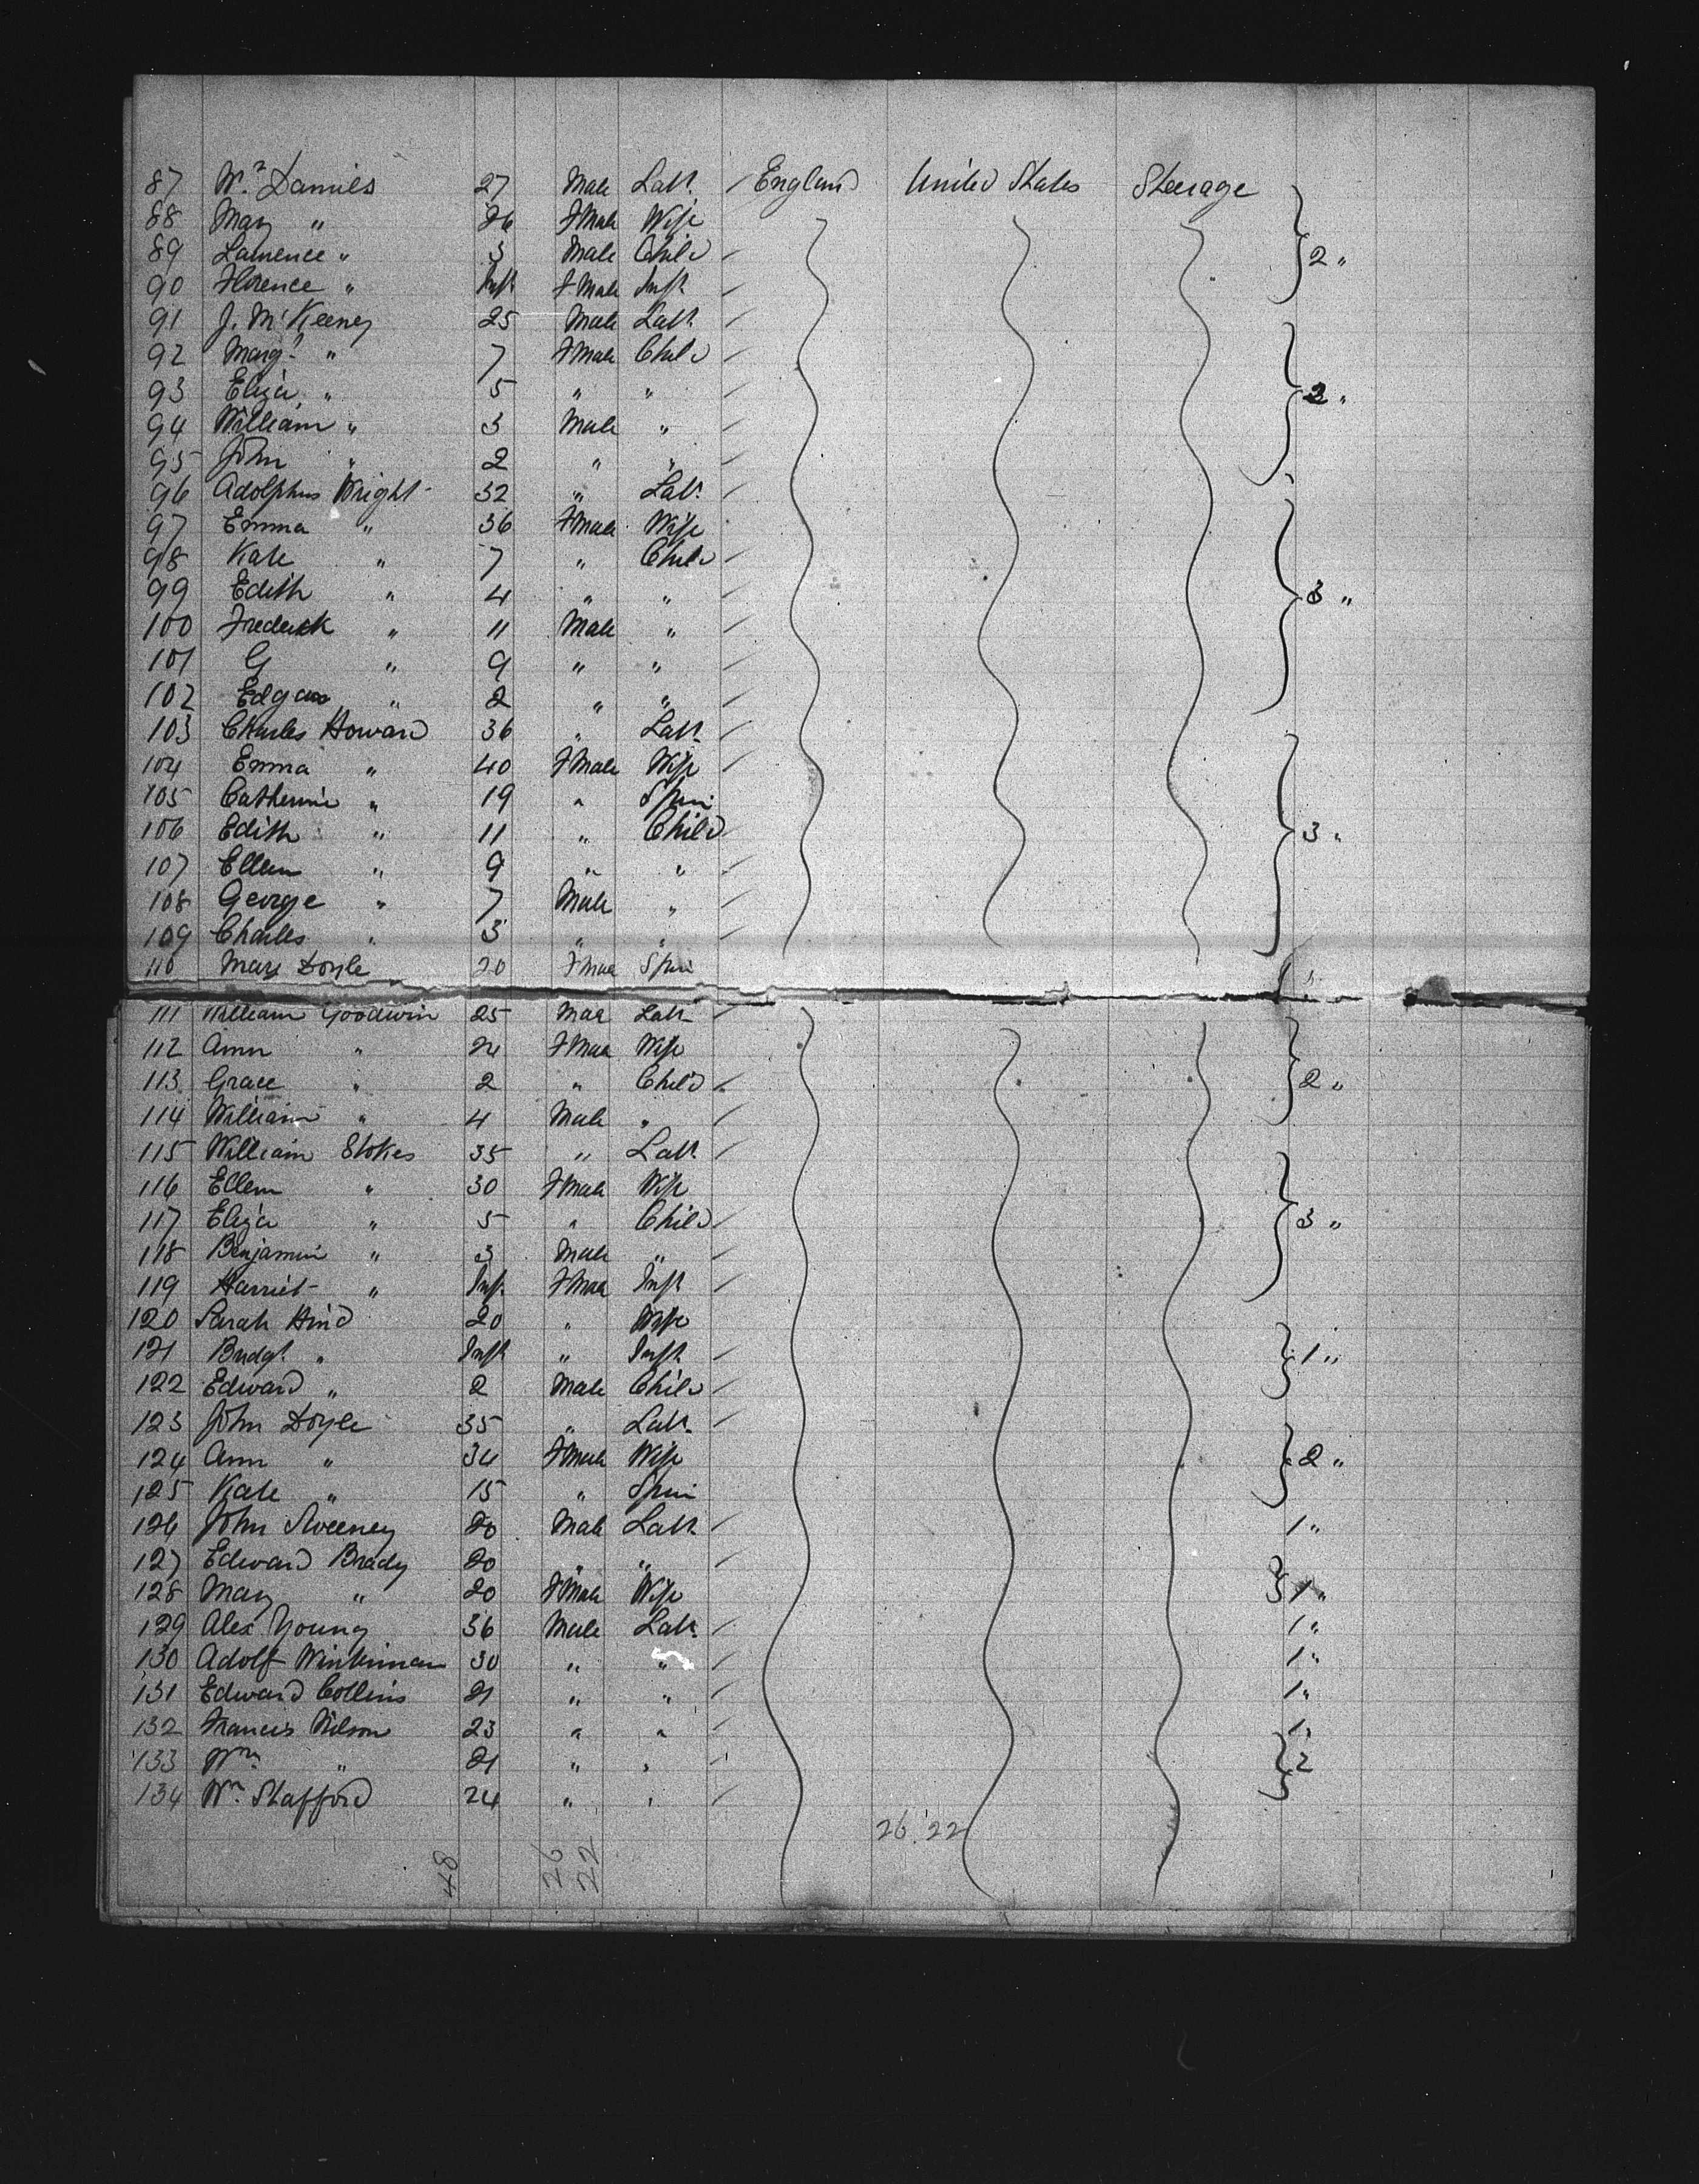 87 Wm Daniels 27 Male Labr England United States Steerage
88 Mary " 26 Fmale Wife
89 Lawrence " 3 Male Child 2 "
90 Florence " Inft Fmale Inft
91 J. McKeeney 25 Male Labr
92 Margt " 7 Fmale Child
93 Eliza " 5 " " 3 "
94 William " 3 Male "
95 John " 2 " "
96 Adolphus Wright 32 " Labr
97 Emma " 36 Fmale Wife
98 Kate " 7 " Child
99 Edith " 4 " " 3 "
100 Frederick " 11 Male "
101 G " 9 " "
102 Edgar " 2 " "
103 Charles Howard 36 " Labr
104 Emma " 40 Fmale Wife
105 Catherine " 19 " Spin
106 Edith " 11 " Child 3 "
107 Ellen " 9 " "
108 George " 7 Male "
109 Charles " 3 " "
110 Mary Doyle 20 Fmale Spin
111 William Goodwin 25 Male Labr
112 Ann " 24 Fmale Wife
113 Grace " 2 " Child 2 "
114 William " 4 Male "
115 William Stokes 35 " Labr
116 Ellen " 30 Fmale Wife
117 Eliza " 5 " Child 3 "
118 Benjamin " 3 Male "
119 Harriet " Inft Fmale Inft
120 Sarah Hind 20 " Wife
121 Bridgt " Inft " Inft 1 "
122 Edward " 2 Male Child
123 John Doyle 35 " Labr
124 Ann " 34 Fmale Wife 2 "
125 Kate " 15 " Spin
126 John Sweeney 20 Male Labr 1 "
127 Edward Brady 20 " "
128 Mary " 20 Fmale Wife 1 "
129 Alex Young 36 Male Labr 1 "
130 Adolf Winkinman 30 " " 1 "
131 Edward Collins 21 " " 1 "
132 Francis Wilson 23 " " 1 "
133 Wm " 21 " " 2
134 Wm Stafford 24 " "
26.22
48 26 22